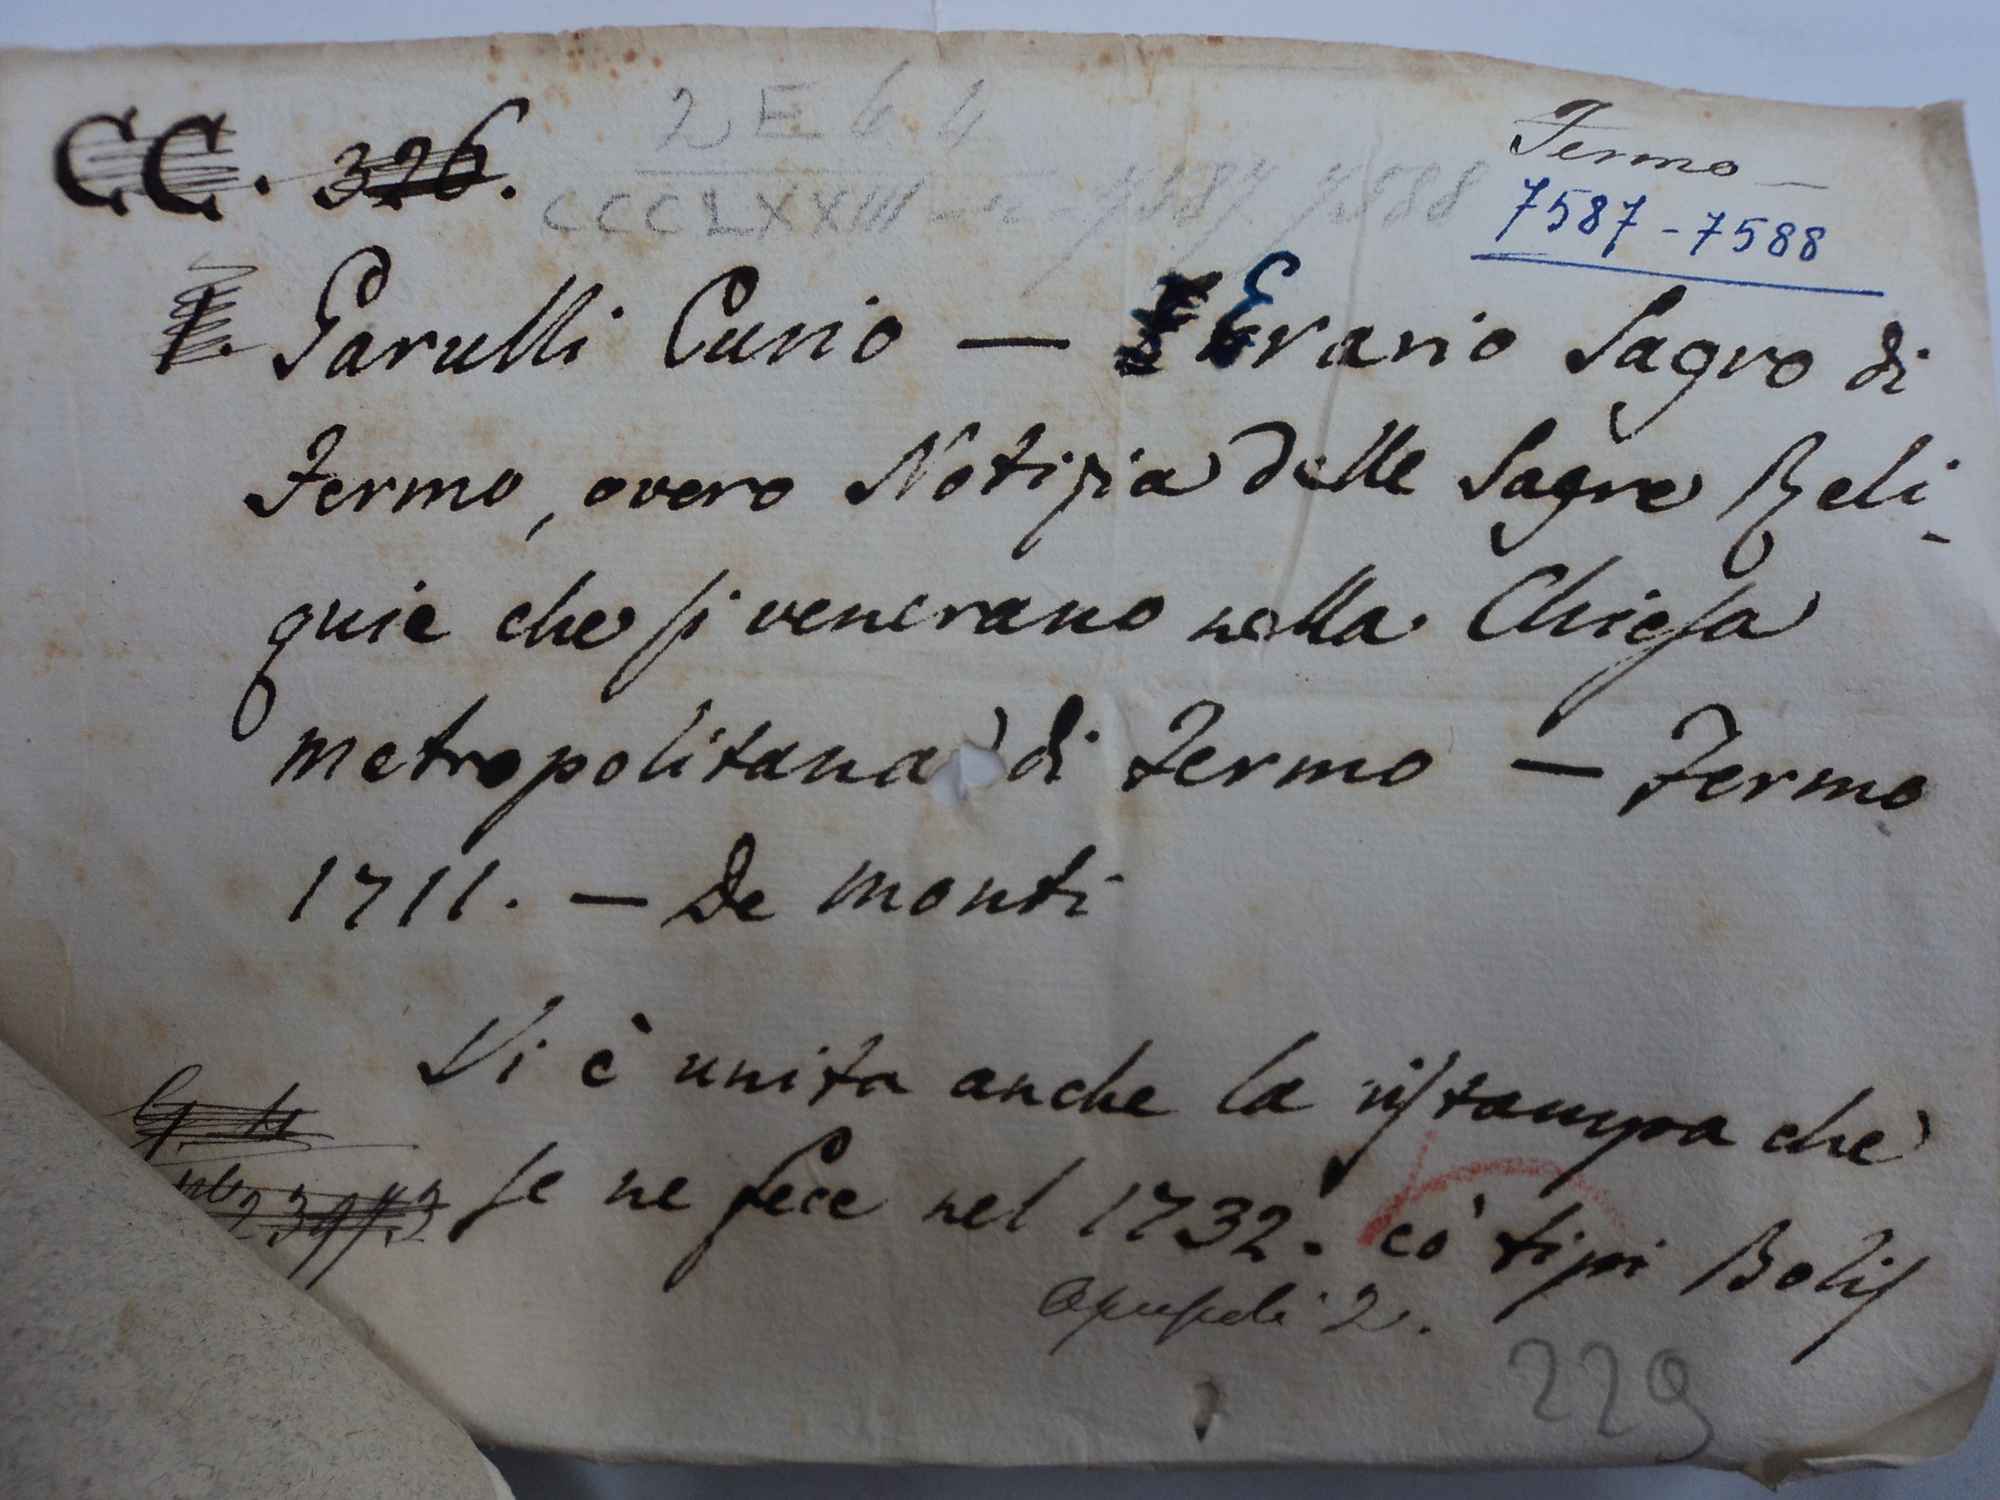 CC. 326.
2 E 6 4
CCCLXXIII
7587 7588
Fermo —
7587 - 7588
Garulli Curio — Erario Sagro di
Fermo, overo Notizia delle Sagre Reli-
quie che si venerano nella Chiesa
metropolitana di Fermo — Fermo
1711. — De monti
Vi è unita anche la ristampa che
se ne fece nel 1732. co' tipi Bolis
Opuscoli 2.
229